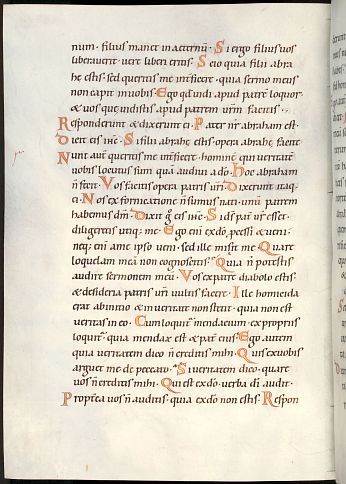 num · filius manet in aeternũ · Si ergo filius uos
liberauerit · uere liberi eritis · Scio quia filii abra
hę estis · sed queritis me interficere · quia sermo meus
non capit in uobis · Ego qđ uidi apud patrẽ loquor ·
& uos quę uidistis apud patrem ur̃m facitis ·
Responderunt & dixerunt ei · Pater nr̃ abraham est ·
Dicit eis ihc̃ · Si filii abrahę estis · opera abrahę facite
Nunc aut̃ queritis me interficere · hominẽ qui ueritatẽ
uobis locutus sum quã audiui a dõ · Hoc abraham
ñ fecit · Vos facitis opera patris ur̃i · Dixerunt itaq;
ei · Nos ex fornicatione ñ sumus nati · unũ patrem
habemus dm̃ · Dixit g̊ eis ihc̃ · Si ds̃ pat̃ ur̃ esset ·
diligeretis utiq; me · Ego eni ex dõ pcessi & ueni ·
neq; eni a me ipso ueni · sed ille misit me · Quare
loquelam meã non cognoscitis · Quia ñ potestis
audire sermonem meũ · Vos ex patre diabolo estis ·
& desideria patris ur̃i uultis facere · Ille homicida
erat ab initio & in ueritate non stetit · quia non est
ueritas in eo · Cum loquit̃ mendacium · ex propriis
loquit̃ · quia mendax est & pat̃ eius · Ego autem
quia ueritatem dico ñ creditis mihi · Quis ex uobis
arguet me de peccato · Si ueritatem dico · quare
uos ñ creditis mihi · Qui est ex dõ · uerba di audit ·
Propt̃ea uos ñ auditis · quia ex dõ non estis · Respon